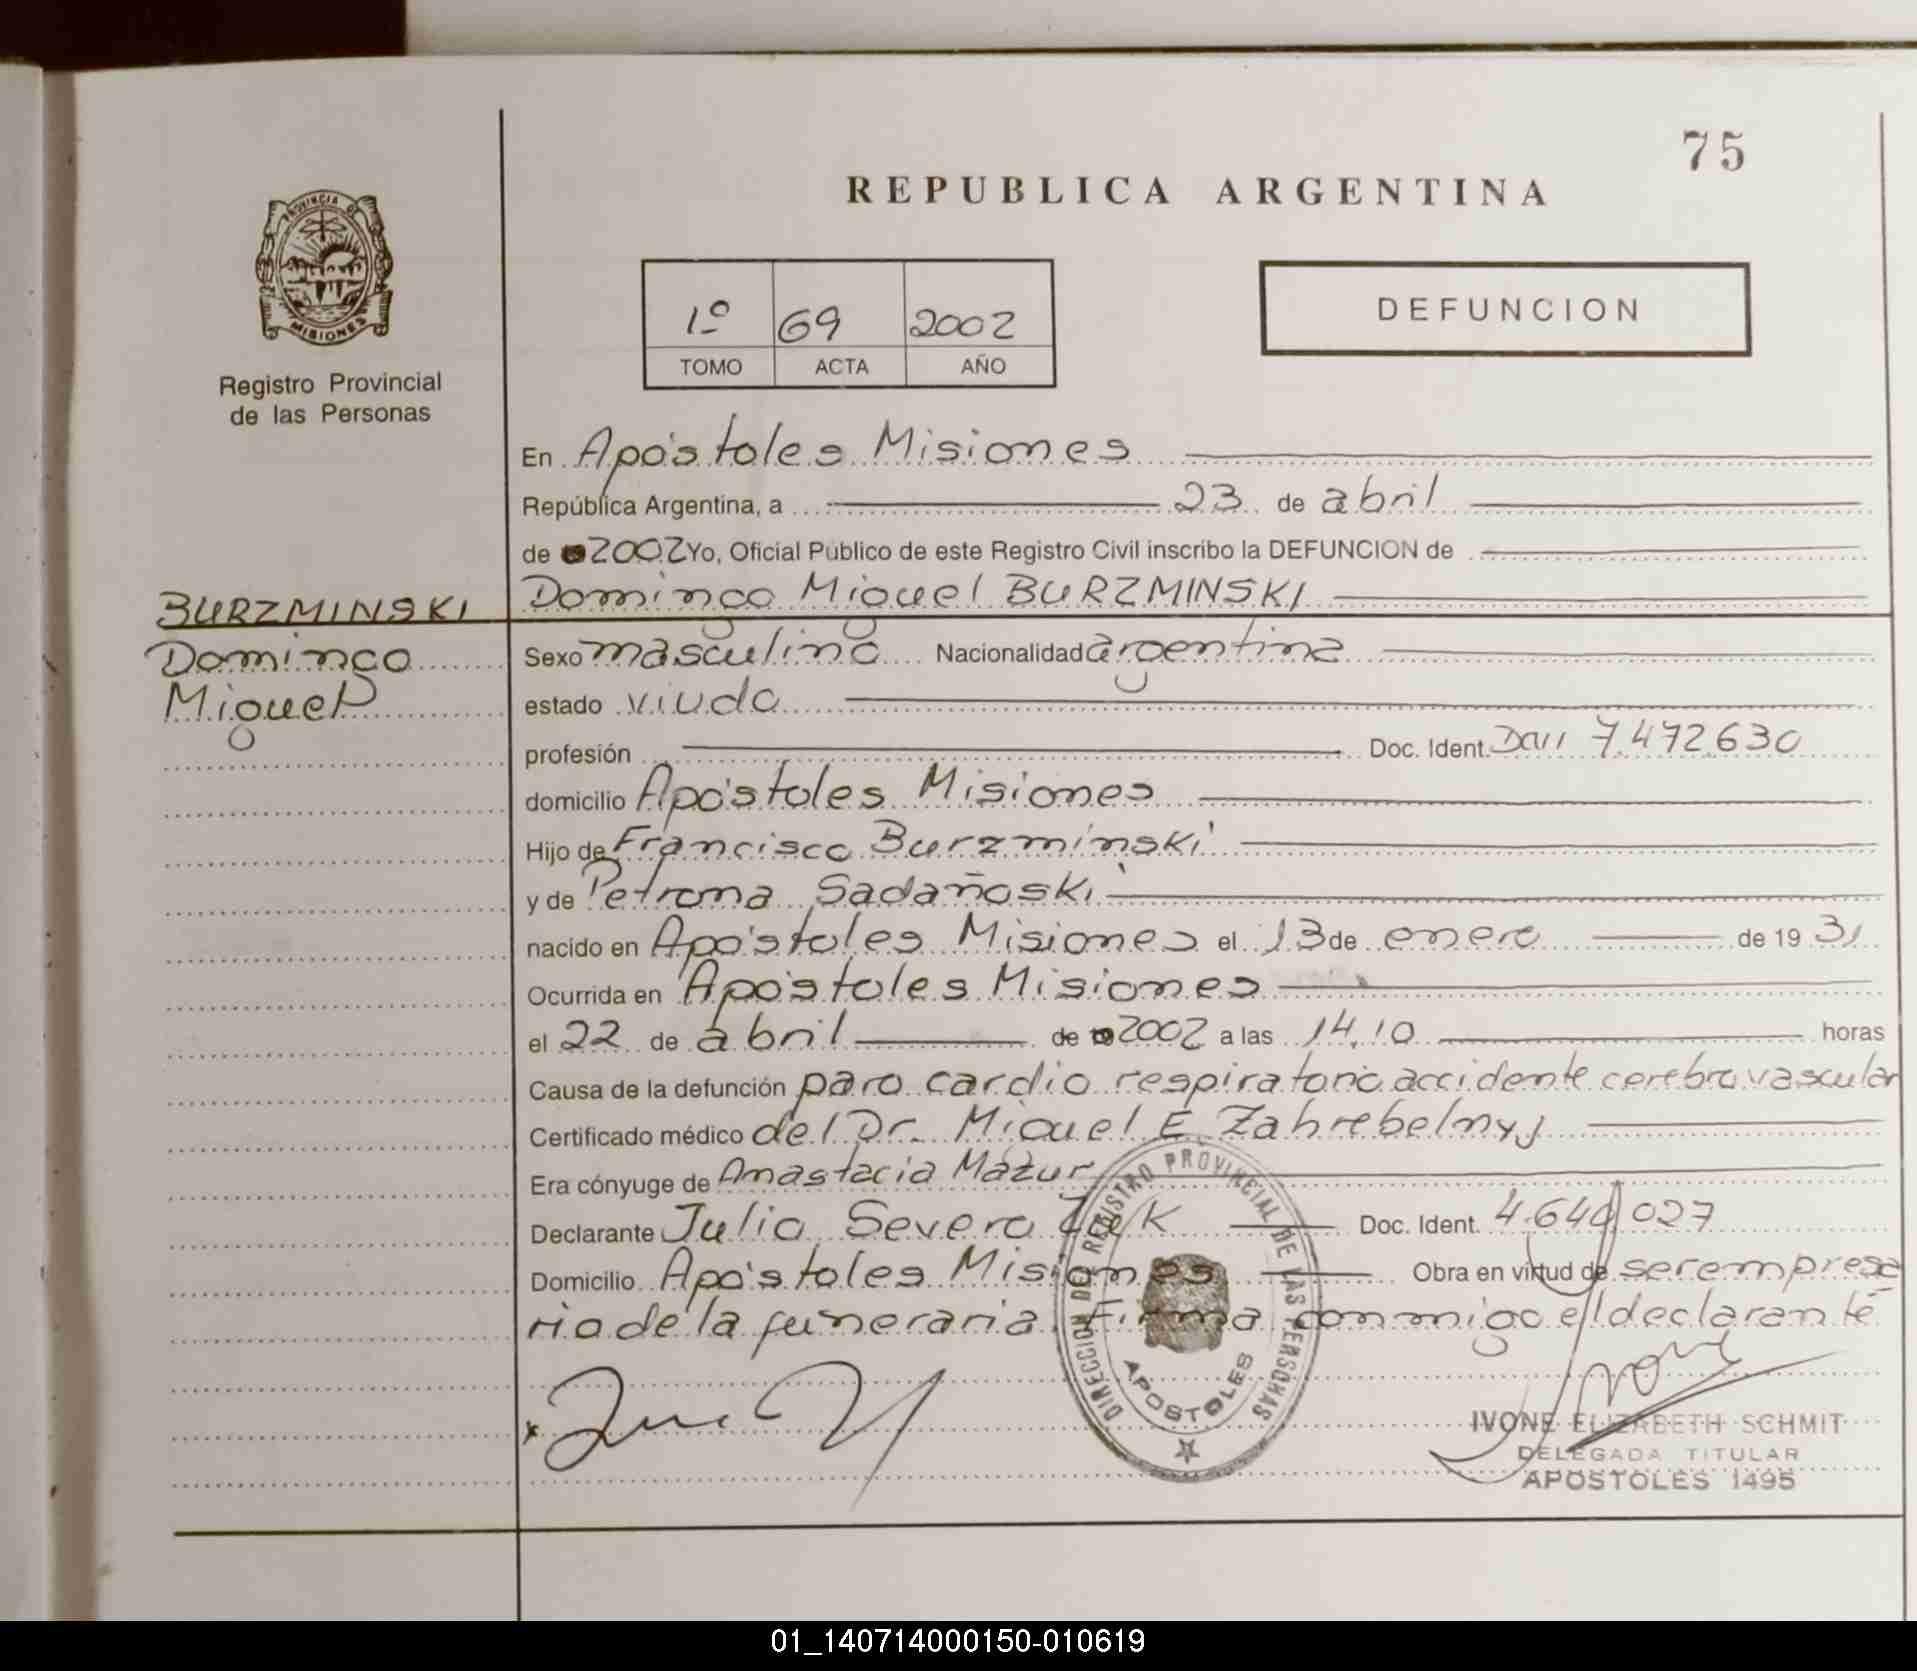 75
REPUBLICA ARGENTINA
PROVINCIA DE
MISIONES
Registro Provincial
de las Personas
1º 69 2002
TOMO ACTA AÑO
DEFUNCION
En Apóstoles Misiones
República Argentina, a 23 de abril
de 2002 Yo, Oficial Público de este Registro Civil inscribo la DEFUNCION de
BURZMINSKI
Domingo
Miguel
Domingo Miguel BURZMINSKI
Sexo masculino Nacionalidad argentina
estado viudo
profesión Doc. Ident. DNI 7.472.630
domicilio Apóstoles Misiones
Hijo de Francisco Burzminski
y de Petrona Sadañoski
nacido en Apóstoles Misiones el 13 de enero de 19 31
Ocurrida en Apóstoles Misiones
el 22 de abril de 2002 a las 14,10 horas
Causa de la defunción paro cardio respiratorio accidente cerebro vascular
Certificado médico del Dr. Miguel E Zahrebelnyj
Era cónyuge de Anastacia Mazur
Declarante Julio Severo Doc. Ident. 4.640.027
Domicilio Apóstoles Misiones Obra en virtud de ser empresa
rio de la funeraria. Firma conmigo el declarante
DIRECCION DEL REGISTRO PROVINCIAL DE LAS PERSONAS
APOSTOLES
IVONE ELIZABETH SCHMIT
DELEGADA TITULAR
APOSTOLES 1495
01_140714000150-010619